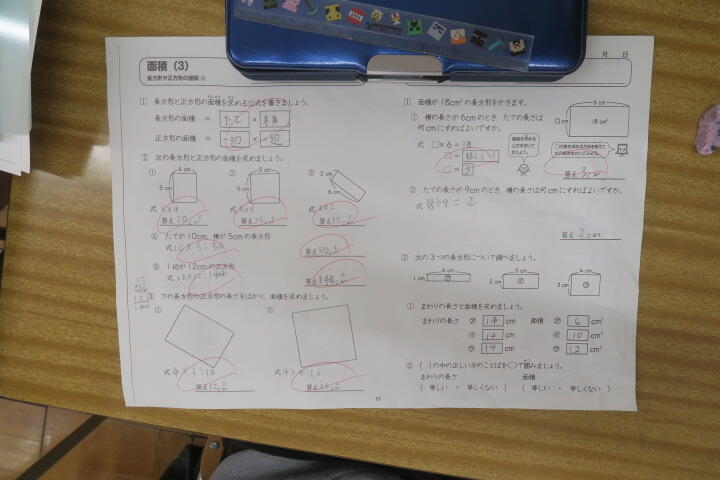 面積（3）
長方形や正方形の面積 ②
月 日
1 長方形と正方形の面積を求める公式を書きましょう。
長方形の面積 ＝ たて ×
正方形の面積 ＝ 一辺 × 一辺
2 次の長方形と正方形の面積を求めましょう。
① ② ③
4cm 5cm 2cm
5cm 5cm 6cm
式 5×4 式 5×5 式
答え 20cm² 答え 25cm² 答え 12cm²
④ たてが10cm、横が5cmの長方形
式 10×5=50
答え 50cm²
⑤ 1辺が12cmの正方形
式 12×12=144
答え 144cm²
3 下の長方形や正方形の長さをはかり、面積を求めましょう。
① ②
式 4×3=12 式 4×4=16
答え 答え
50
1 面積が18cm²の長方形をかきます。
① 横の長さが6cmのとき、たての長さは
何cmにすればよいですか。
6cm
□cm 18cm²
式 □×6＝18
□＝
□＝ 3
面積を求める
公式を使って
考えよう。
答え 3cm
② たての長さが9cmのとき、横の長さは何cmにすればよいですか。
式 18÷9=2
答え 2cm
2 次の3つの長方形について調べましょう。
6cm 5cm 4cm
1cm ㋐ 2cm ㋑ 3cm ㋒
① まわりの長さと面積を求めましょう。
まわりの長さ ㋐ 14 cm 面積 ㋐ 6 cm²
㋑ 14 cm ㋑ 10 cm²
㋒ 14 cm ㋒ 12 cm²
② （ ）の中の正しい方のことばを○で囲みましょう。
まわりの長さ 面積
（ 等しい ・ 等しくない ） （ 等しい ・ 等しくない ）